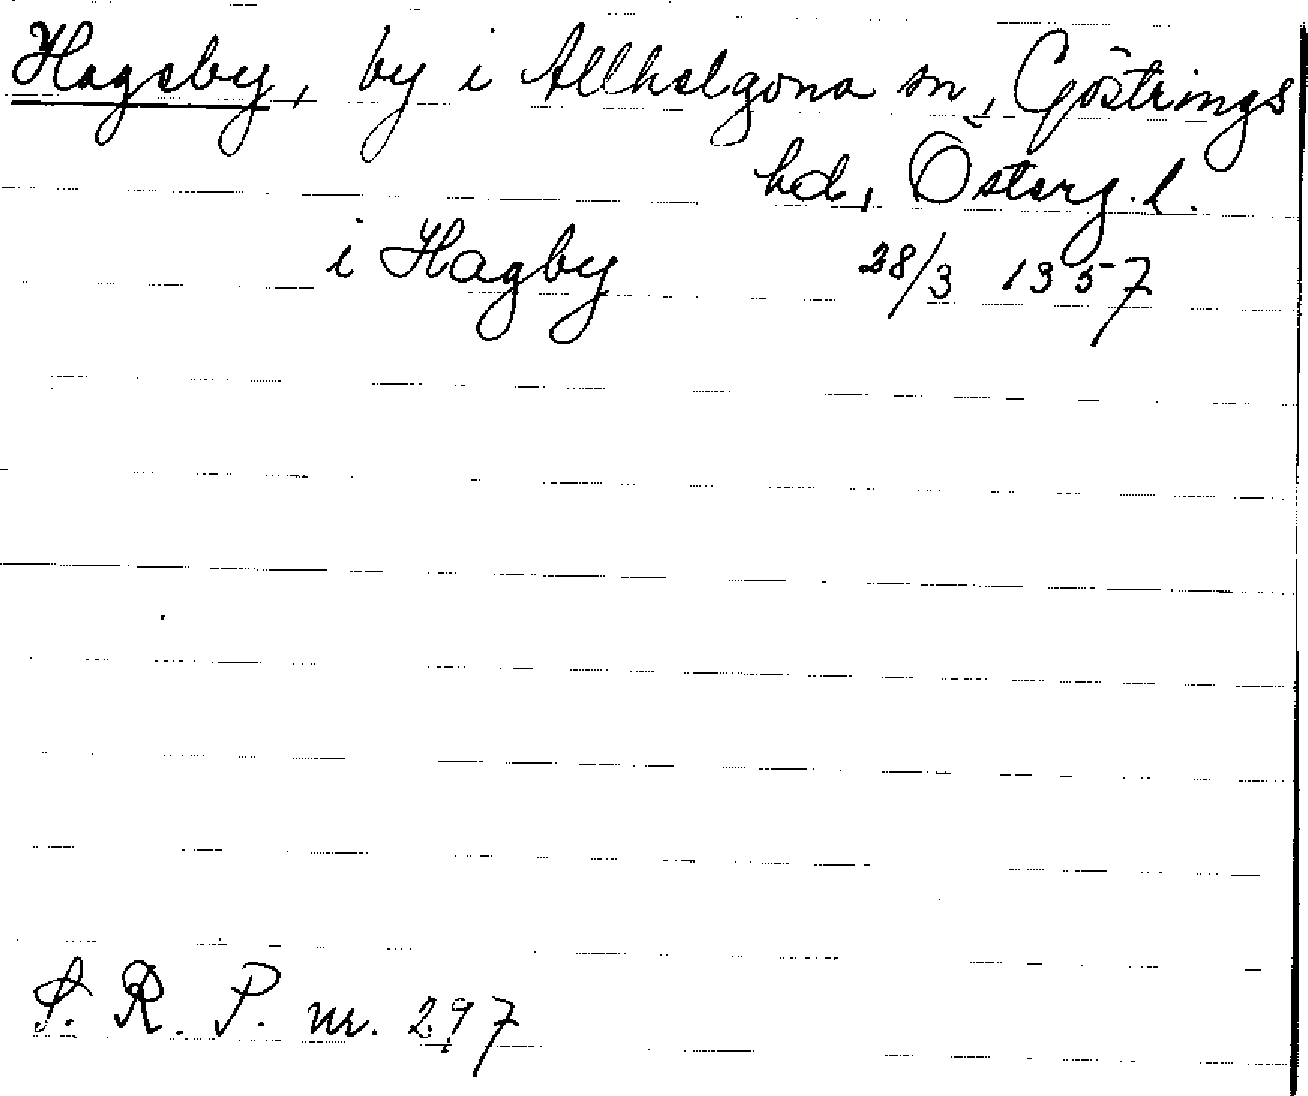 Hagsby, by i Allhelgona sn, Göstrings
hd, Österg. l.
i Hagby 28/3 1357
S. R. P. nr. 297